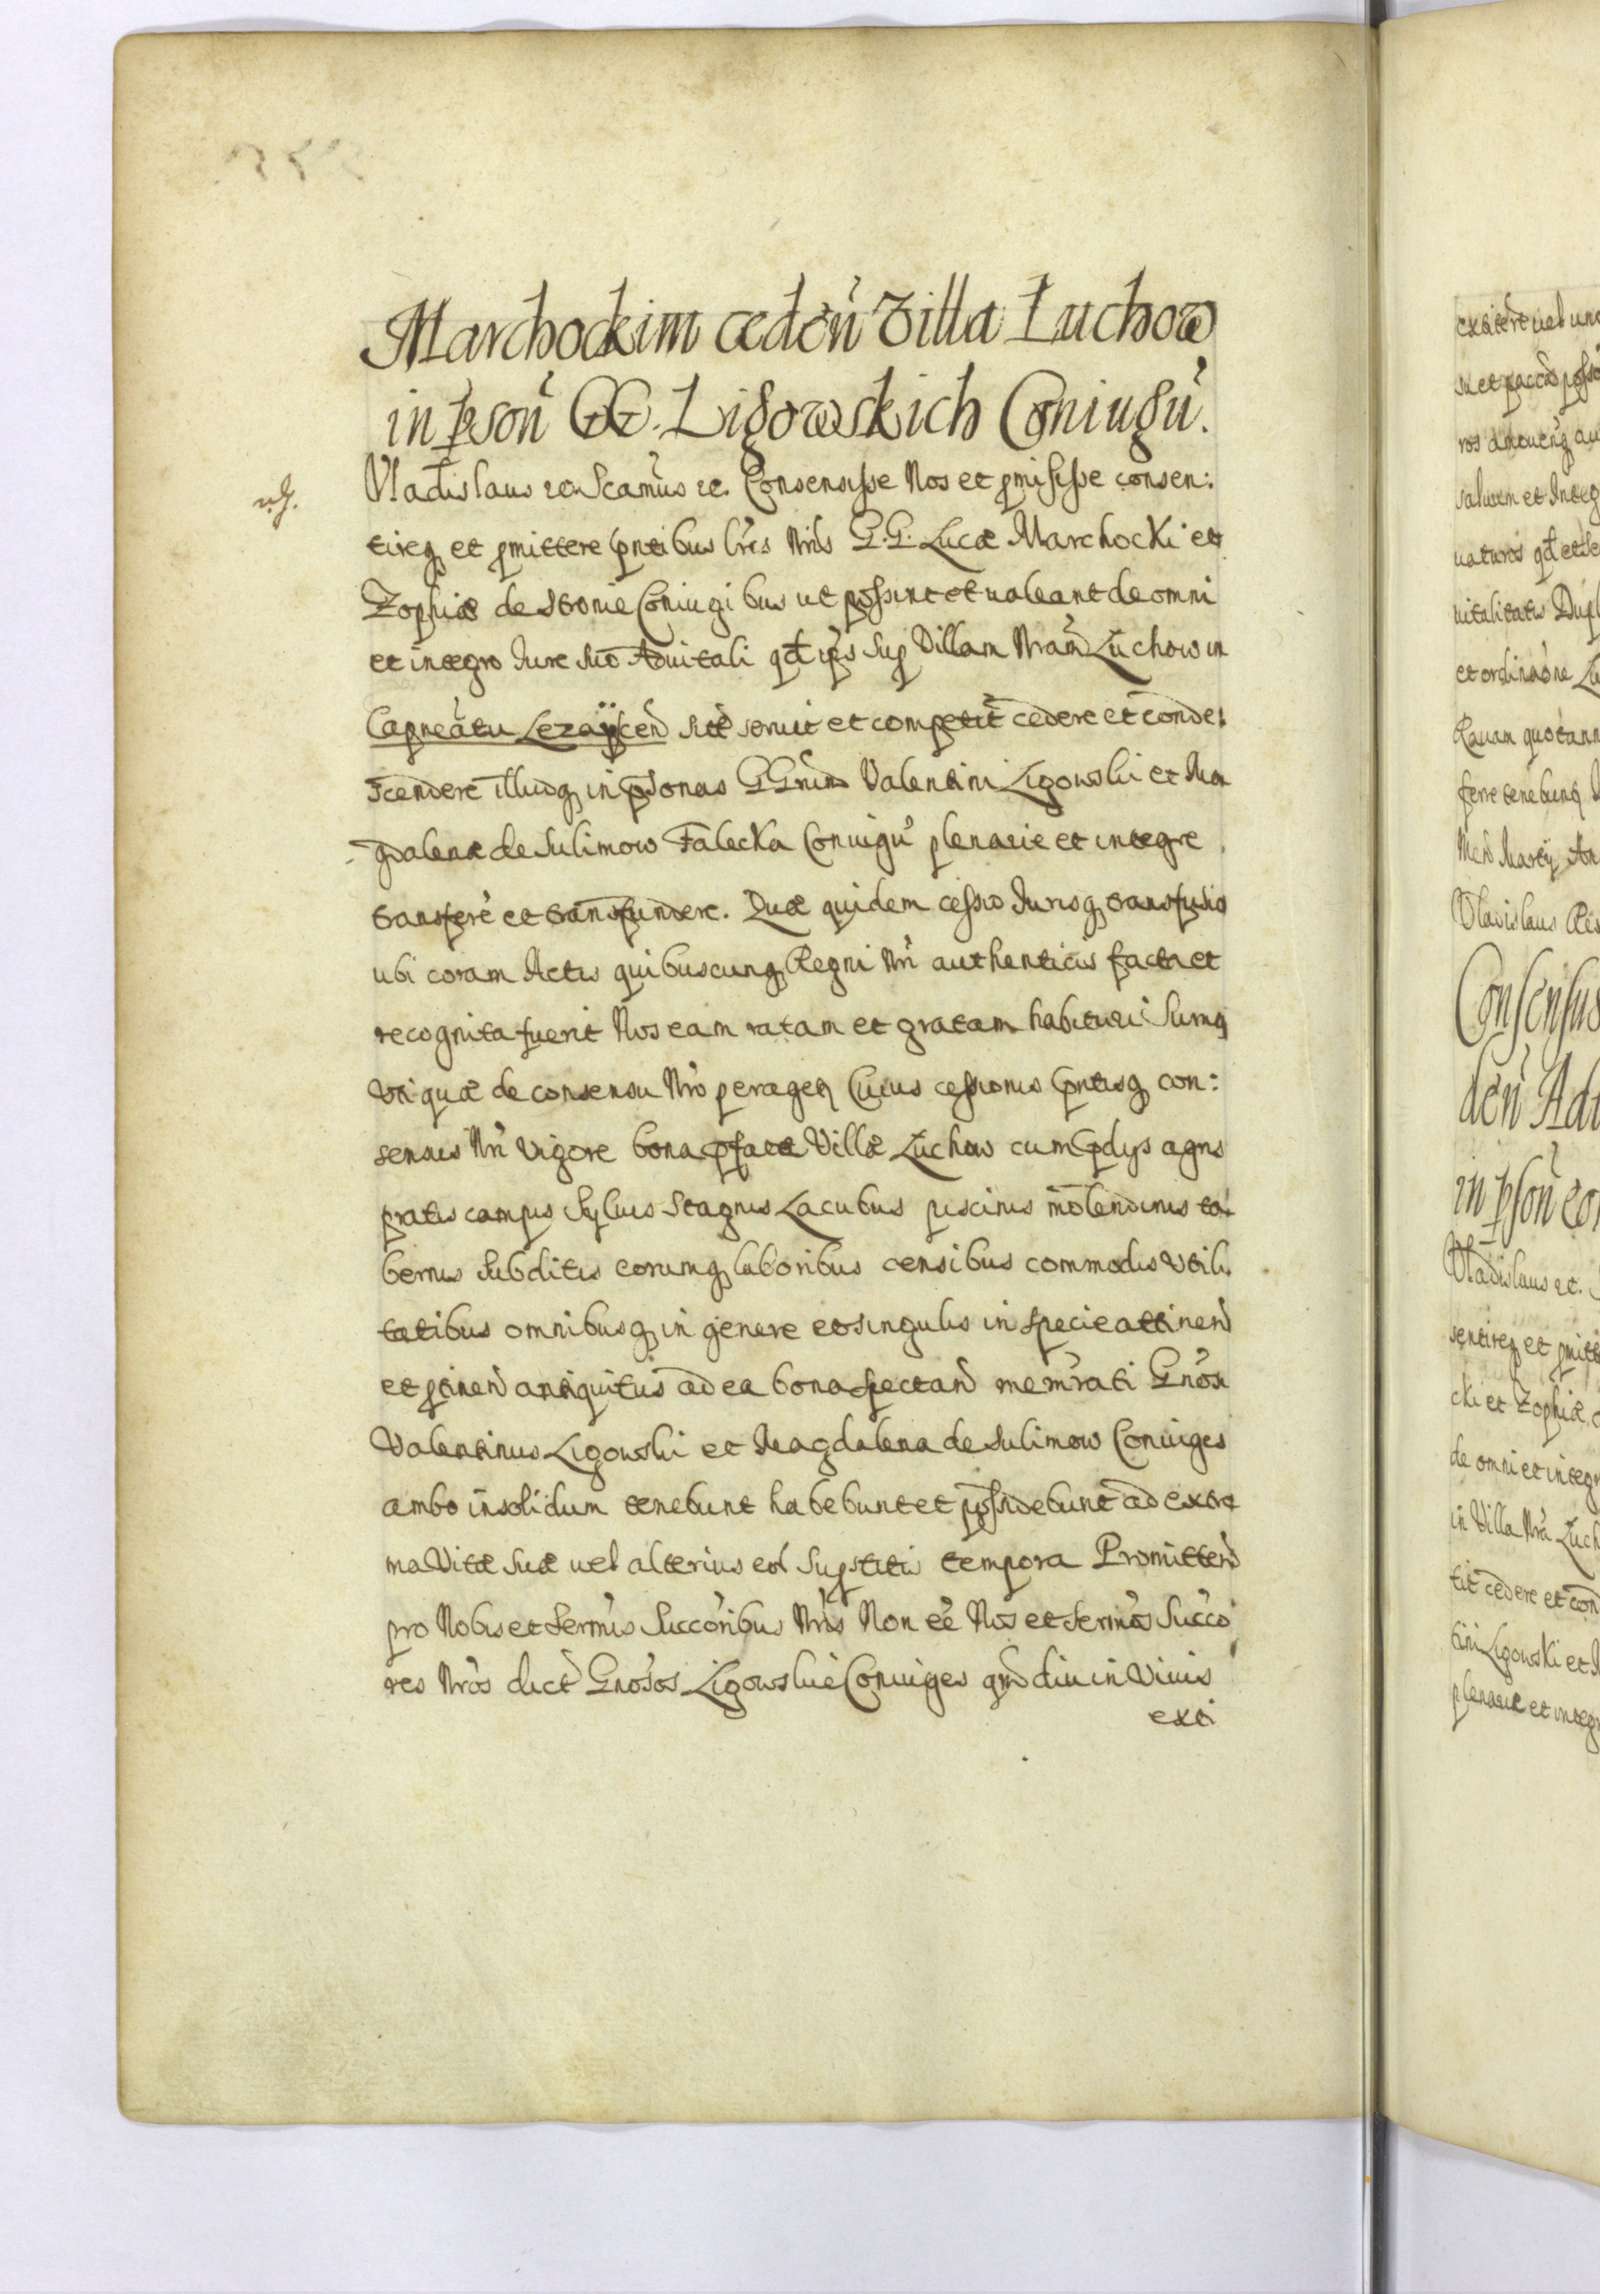 Marchockim cedeñ Villa Luchow
in pson̄ GG. Ligowskich Coniugū.
Vladislaus rex Scamūs rc. Consensisse Nos et pmisisse consen:
tireq et pmittere pntibus lr̄is Nris G. G. Lucæ Marchocki et
Zophiæ de Stonie Coniugibus ut possint et ualeant de omni
et integro Iure suo Aduitali qd ips sup Villam Nram̄ Luchow in
Capneatu Lezayscen̄ siti seruit et competit cedere et conde:
scendere illudq in psonas GGnrum Valentini Ligowski et Ma
gdalenæ de Sulimow Falecka Coniugū plenarie et integre
transferē et transfundere. Quæ quidem cessio Iurisq transfusio
ubi coram Actis quibuscunq Regni Nri authenticis facta et
recognita fuerit Nos eam ratam et gratam habituri Sumq
Vti quæ de consensu Nro perageq Cuius cessionis pntisq con:
sensus Nri vigore bona pfata Villæ Luchow cum pdys agris
pratis campis Syluis Stagnis Lacubus piscinis molendinis ta:
bernis Subditis eorumq laboribus censibus commodis Vtili
tatibus omnibusq in genere et singulis in specie attinen̄
et ptinen̄ antiquitus ad ea bona spectan̄ mem̄rati Gnosi
Valentinus Ligowski et Magdalena de Sulimow Coniuges
ambo insolidum tenebunt habebunt et possidebunt ad extre
ma Vitæ suæ uel alterius eor̄ Supstitis tempora Promitten̄
pro Nobis et Sermīs Succōribus Nris Non eē Nos et Sermōs Succo
res Nros dict Gnosos Ligowskie Coniuges qmdiu in Viuis
exti
Consensus
in psoñ
Vladislaus
sentireq et
cki et Zophiæ
de omni et integr
in Villa Nra Luch
tit cedere et con
tini Ligowski et
plenarie et integr